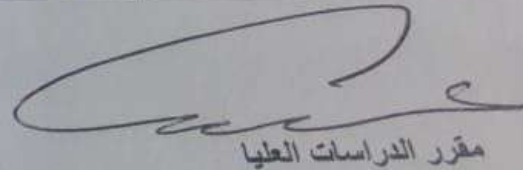 مقرر الدراسات العليا